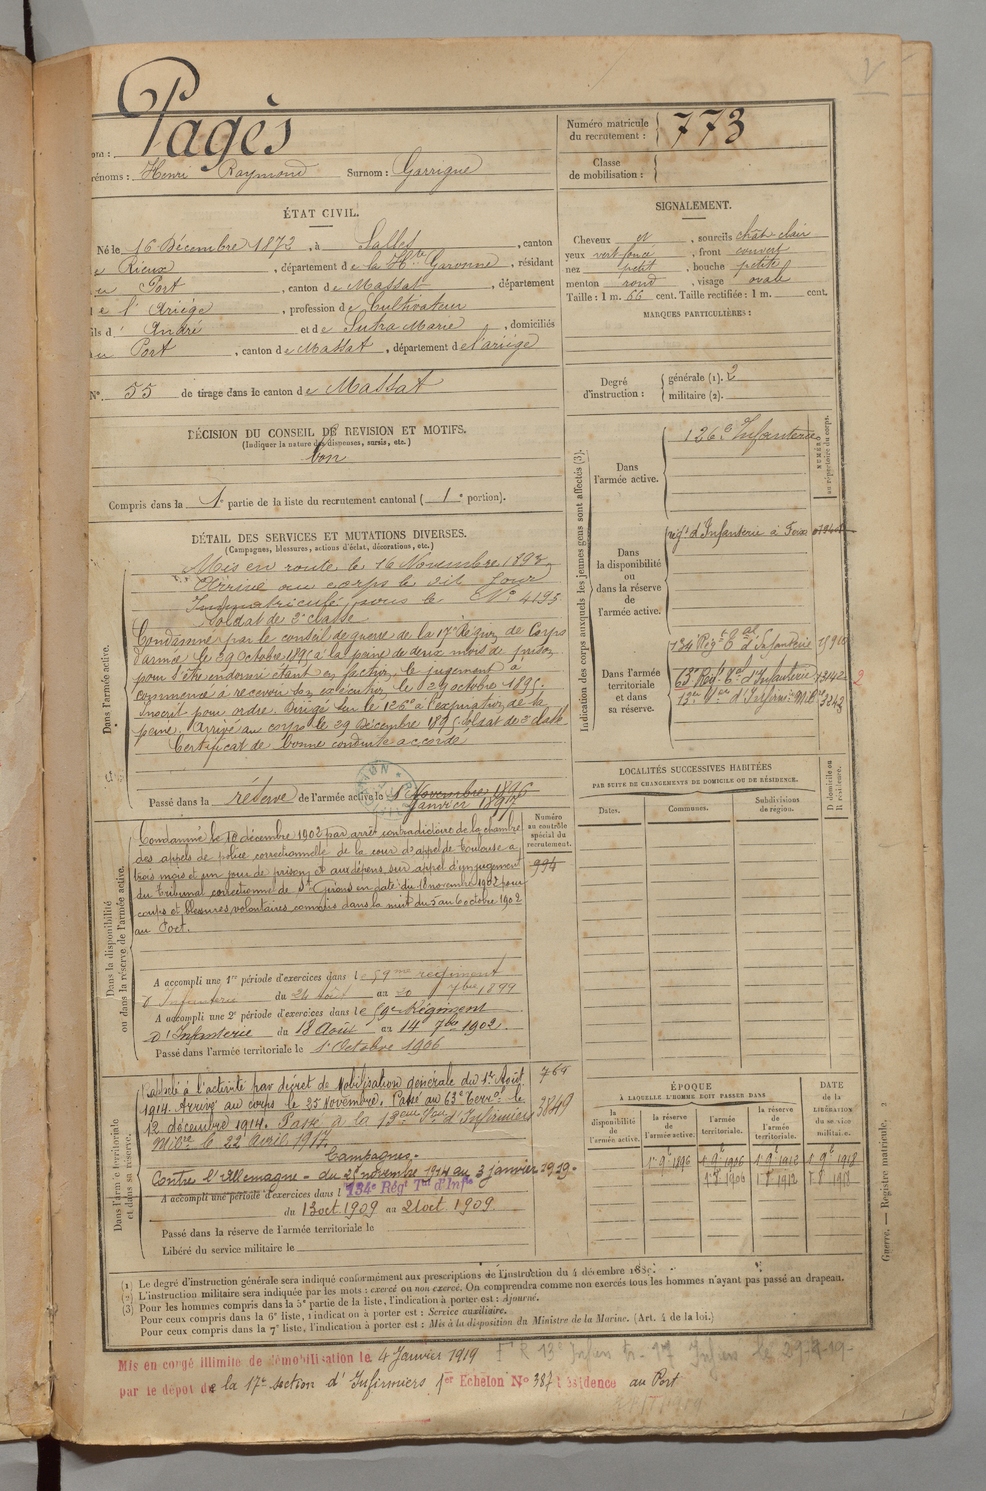 Pagès
Nom :
Prénoms : Henri Raymond Surnom : Garrigue
Numéro matricule du recrutement : 773
Classe de mobilisation :
ÉTAT CIVIL.
Né le 16 Décembre 1872, à Salles, canton
de Rieux, département de la Hte Garonne, résidant
au Port, canton de Massat, département
de l'Ariége, profession de Cultivateur
fils d'André et de Sutra Marie, domiciliés
au Port, canton de Massat, département de l'ariége
N° 55 de tirage dans le canton de Massat
DÉCISION DU CONSEIL DE REVISION ET MOTIFS.
(Indiquer la nature des dispenses, sursis, etc.)
bon
Compris dans la 1e partie de la liste du recrutement cantonal ( 1e portion).
SIGNALEMENT.
Cheveux et, sourcils chât clair
yeux vert foncé, front couvert
nez petit, bouche petite
menton rond, visage ovale
Taille : 1 m. 66 cent. Taille rectifiée : 1 m. cent.
MARQUES PARTICULIÈRES :
Degré d'instruction : générale (1). 2
militaire (2).
DÉTAIL DES SERVICES ET MUTATIONS DIVERSES.
(Campagnes, blessures, actions d'éclat, décorations, etc.)
Dans l'armée active.
Mis en route le 16 Novembre 1893
Arrivé au corps le dit Jour
Immatriculé sous le N° 4193
Soldat de 2e classe
Condamné par le conseil de guerre de la 17e Région de Corps
d'armée, le 29 Octobre 1895 à la peine de deux mois de prison
pour s'être endormi étant en faction, le jugement a
commencé à recevoir son exécution le 29 octobre 1895.
Inscrit pour ordre. Dirigé sur le 126e à l'expiration de sa
peine. Arrivé au corps le 29 Décembre 1895 soldat de 2e classe
Certificat de bonne conduite accordé
Passé dans la réserve de l'armée active le 1 Novembre 1896
Janvier 1897
Numéro au contrôle spécial du recrutement.
994
Dans la disponibilité ou dans la réserve de l'armée active.
Condamné le 10 décembre 1902 par arrêt contradictoire de la chambre
des appels de police correctionnelle de la cour d'appel de Toulouse a
trois mois et un jour de prison et aux dépens, sur appel d'un jugement
du Tribunal correctionnel de St Girons en date du 18 novembre 1902 pour
coups et blessures volontaires commis dans la nuit du 5 au 6 octobre 1902
au Port.
A accompli une 1re période d'exercices dans le 59me régiment
d'Infanterie du 24 Août au 20 7bre 1899
A accompli une 2e période d'exercices dans le 59e Régiment
d'Infanterie du 18 Août au 14 7bre 1902.
Passé dans l'armée territoriale le 1 Octobre 1906
Dans l'armée territoriale et dans sa réserve.
Rappelé à l'activité par décret de Mobilisation générale du 1er Août
1914. Arrivé au corps le 25 Novembre. Passé au 63e Terral le
12 décembre 1914. Passé à la 13eme Son d'Infirmiers
Mres le 22 Avril 1917.
769
3849
Campagnes.
Contre l'Allemagne - du 25 novembre 1914 au 3 janvier 1919.
A accompli une période d'exercices dans l 134e Régt Tal d'Infie
du 13 oct. 1909 au 21 oct 1909
Passé dans la réserve de l'armée territoriale le
Libéré du service militaire le
Indication des corps auxquels les jeunes gens sont affectés (3).
NUMÉRO au répertoire du corps.
Dans l'armée active. 126e Infanterie
Dans la disponibilité ou dans la réserve de l'armée active.
régt d'Infanterie à Foix
Dans l'armée territoriale et dans sa réserve.
134e Régt Tal d'Infanterie
63e Régt Tal d'Infanterie 2
13eme Son d'Infirmiers Mres 3243
LOCALITÉS SUCCESSIVES HABITÉES
PAR SUITE DE CHANGEMENTS DE DOMICILE OU DE RÉSIDENCE.
Dates. Communes. Subdivisions de région. D. domicile ou R. résidence.
ÉPOQUE
À LAQUELLE L'HOMME DOIT PASSER DANS
la disponibilité de l'armée active. la réserve de l'armée active. l'armée territoriale. la réserve de l'armée territoriale. DATE de la LIBÉRATION du service militaire.
1 9e 1896 1 9e 1906 1 9e 1912 1 9e 1918
1 8 1906 1 8 1912 1 8 1918
Guerre. — Registre matricule. 2
(1) Le degré d'instruction générale sera indiqué conformément aux prescriptions de l'instruction du 4 décembre 1889.
(2) L'instruction militaire sera indiquée par les mots : exercé ou non exercé. On comprendra comme non exercés tous les hommes n'ayant pas passé au drapeau.
(3) Pour les hommes compris dans la 5e partie de la liste, l'indication à porter est : Ajourné.
Pour ceux compris dans la 6e liste, l'indication à porter est : Service auxiliaire.
Pour ceux compris dans la 7e liste, l'indication à porter est : Mis à la disposition du Ministre de la Marine. (Art. 4 de la loi.)
Mis en congé illimité de démobilisation le 4 Janvier 1919
par le dépôt de la 17e section d'Infirmiers 1er Echelon N° 387 résidence au Port